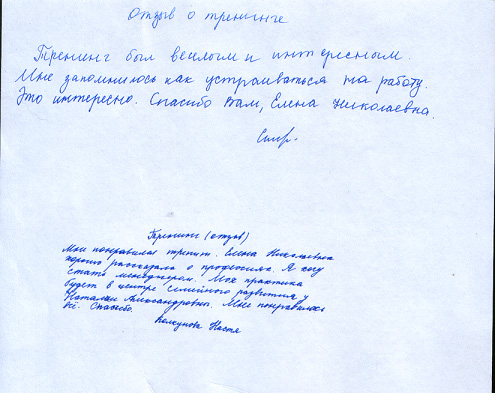 Отзыв о тренинге
Тренинг был веклым и интересным.
Мне запомнилось как устраиваться на работу.
Это интересно. Спасибо Вам, Елена Николаевна.
Тренинг (отзыв)
Мне понравился тренинг. Елена Николаевна
хорошо рассказала о профессиях. Я хочу
стать менеджером. Моя практика
будет в центре семейного развития у
Наталии Александровны. Мне понравилось
всё. Спасибо.
Настя